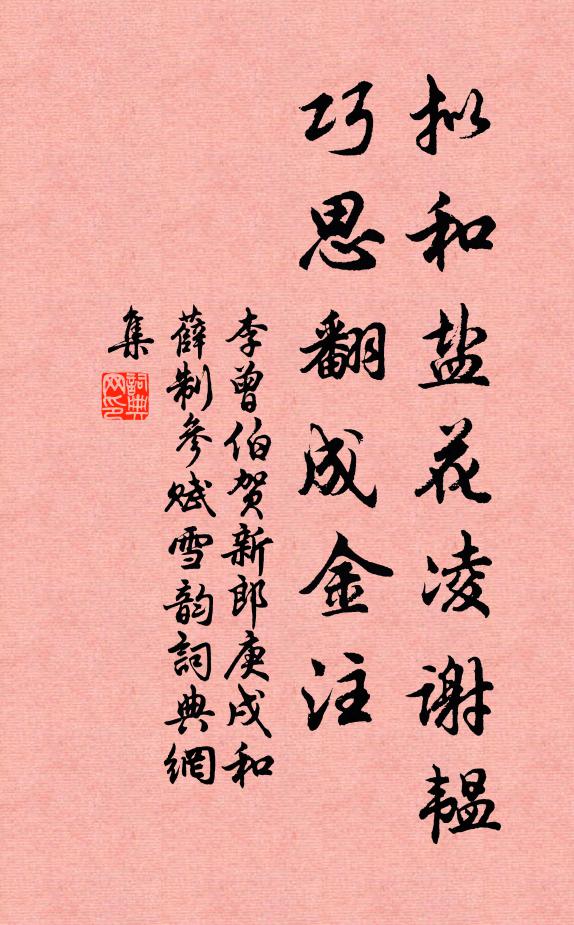 拟和盐花凌谢韫
巧思翻成金注
李曾伯贺新郎庚戌和
薛制参赋雪韵詞典網
集
詞典网印